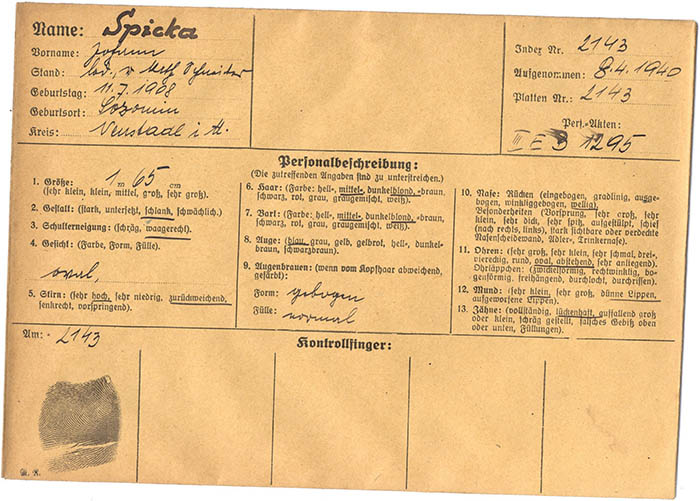 Name: Spicka
Vorname: Johann
Stand: led., Schneider
Geburtstag: 11.7.1908
Geburtsort:
Kreis: Neustadl i. M.
Index Nr. 2143
Aufgenommen: 8.4.1940
Platten Nr.: 2143
Pers.-Akten:
III E 3 1295
Personalbeschreibung:
(Die zutreffenden Angaben sind zu unterstreichen.)
1. Größe: 1 m 65 cm
(sehr klein, klein, mittel, groß, sehr groß).
2. Gestalt: (stark, untersetzt, schlank, schwächlich).
3. Schulterneigung: (schräg, waagerecht).
4. Gesicht: (Farbe, Form, Fülle).
oval,
5. Stirn: (sehr hoch, sehr niedrig, zurückweichend,
senkrecht, vorspringend).
6. Haar: (Farbe: hell-, mittel-, dunkelblond, -braun,
schwarz, rot, grau, graugemischt, weiß).
7. Bart: (Farbe: hell-, mittel-, dunkelblond, -braun,
schwarz, rot, grau, graugemischt, weiß).
8. Auge: (blau, grau, gelb, gelbrot, hell-, dunkel-
braun, schwarzbraun).
9. Augenbrauen: (wenn vom Kopfhaar abweichend,
gefärbt):
Form: gebogen
Fülle: normal
10. Nase: Rücken (eingebogen, gradlinig, ausge-
bogen, winkliggebogen, wellig).
Besonderheiten (Vorsprung, sehr groß, sehr
klein, sehr dick, sehr spitz, aufgestülpt, schief
(nach rechts, links), stark sichtbare oder verdeckte
Nasenscheidewand, Adler-, Trinkernase).
11. Ohren: (sehr groß, sehr klein, sehr schmal, drei-
viereckig, rund, oval, abstehend, sehr anliegend).
Ohrläppchen: (zwickelförmig, rechtwinklig, bo-
genförmig, freihängend, durchlocht, durchrissen).
12. Mund: (sehr klein, sehr groß, dünne Lippen,
aufgeworfene Lippen).
13. Zähne: (vollständig, lückenhaft, auffallend groß
oder klein, schräg gestellt, falsches Gebiß oben
oder unten, Füllungen).
Am: 2143
Kontrollfinger:
M. R.